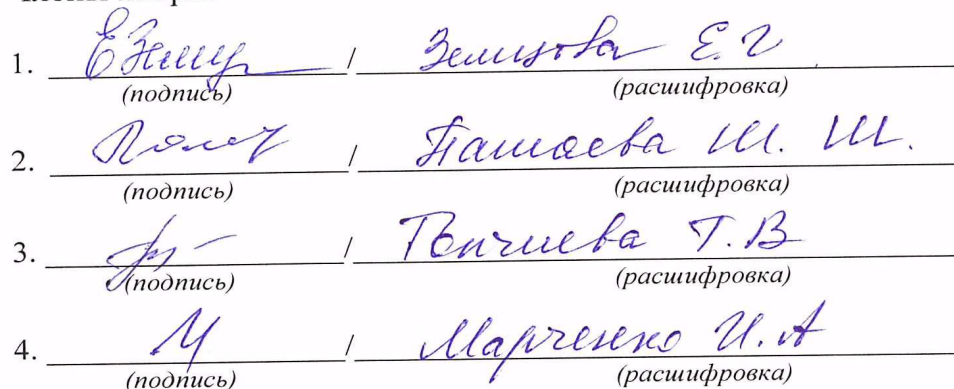 1. / Земцова Е.Г
(подпись) (расшифровка)
2. / Пашаева Ш. Ш.
(подпись) (расшифровка)
3. / Т.В
(подпись) (расшифровка)
4. / Марченко И.А
(подпись) (расшифровка)